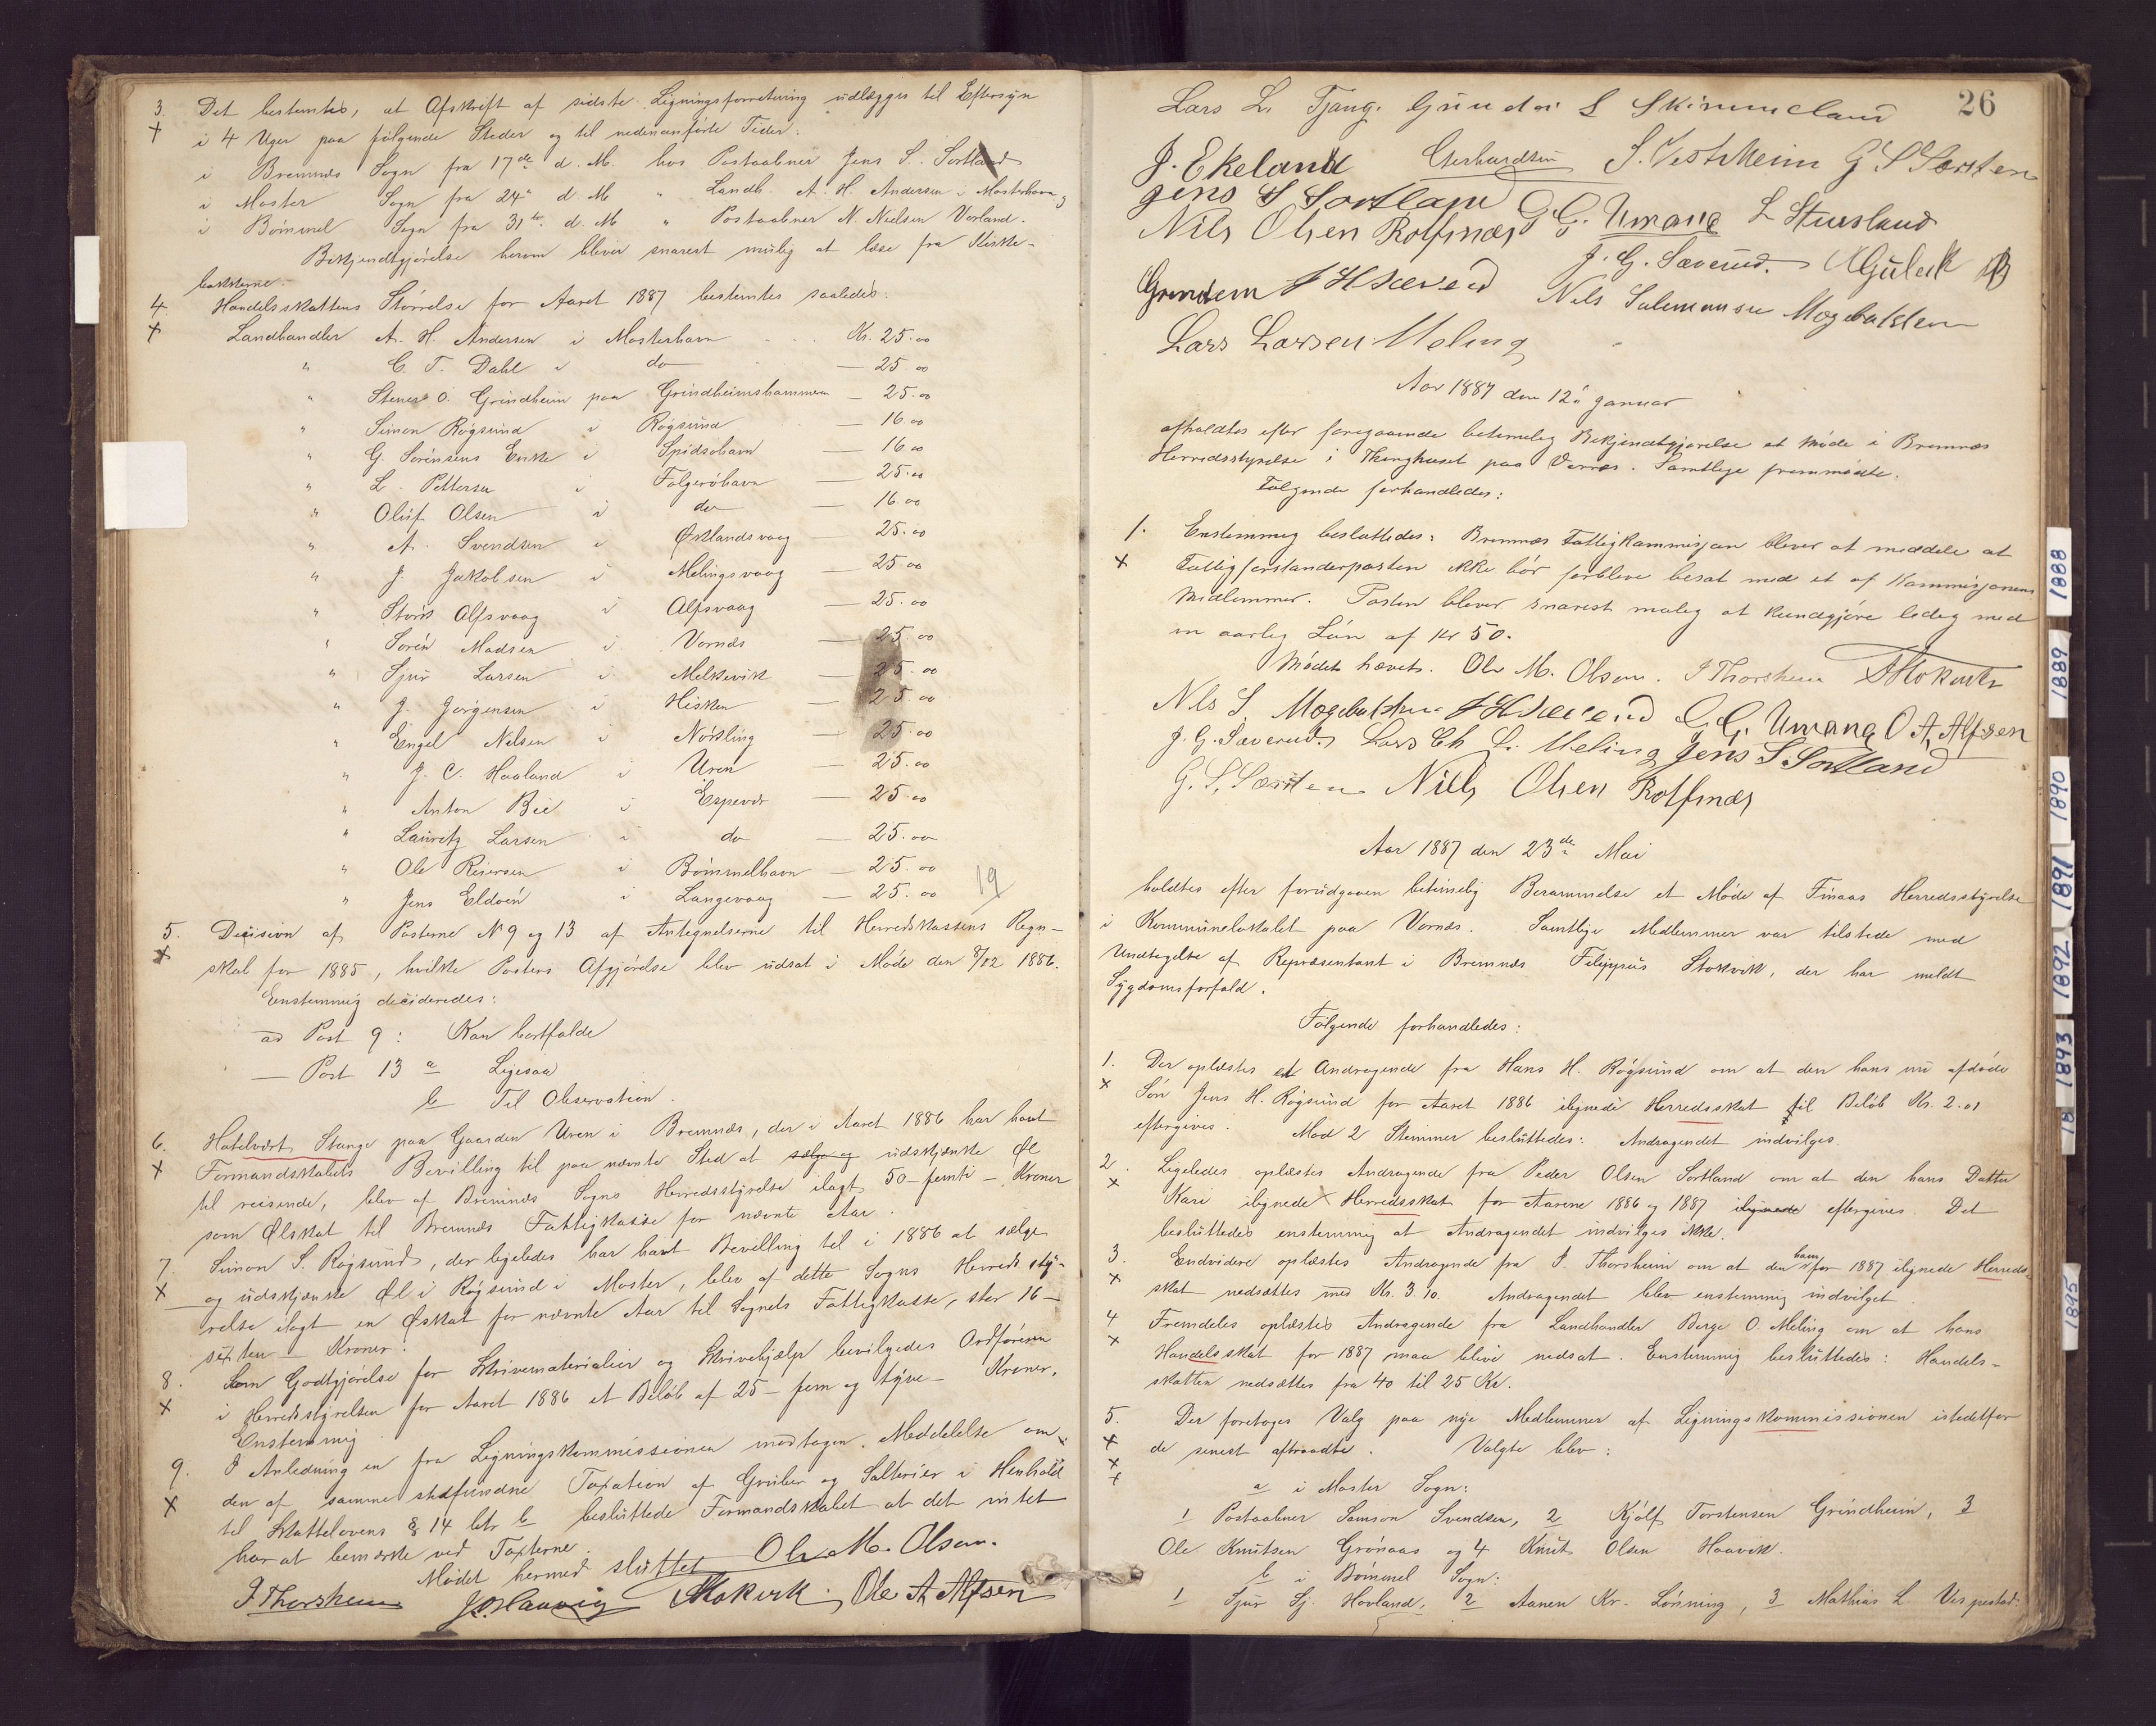 3. Det bestemtes, at Afskrift af sidste Ligningsforretning udlægges til Eftersyn
+ i 4 Uger paa følgende Steder og til nedenanførte Tider:
i Bremnes Sogn fra 17de d. M. hos Postaabner Jens S. Sortland
i Moster Sogn fra 24de d. M. " Landh. A. H. Andersen i Mosterhavn og
i Bømmel Sogn fra 31te d. M. " Postaabner N. Nielsen Vorland.
Bekjendtgjørelse herom bliver snarest mulig at læse fra Kirke-
bakkerne.
4. Handelsskattens Størrelse for Aaret 1887 bestemtes saaledes:
+ Landhandler A. H. Andersen i Mosterhavn Kr. 25.00
" C. T. Dahl i do — 25.00
" Stener O. Grindheim paa Grindheimshammern — 25.00
" Simon Røgsund i Røgsund — 16.00
" G. Sørensens Enke i Spidsøhavn — 16.00
" L. Pettersen i Folgerøhavn — 25.00
" Oluf Olsen i do — 16.00
" A. Svendsen i Øklandsvaag — 25.00
" J. Jakobsen i Melingsvaag — 25.00
" Størk Alfsvaag i Alfsvaag — 25.00
" Sørén Madsen i Vornæs — 25.00
" Sjur Larsen i Melkevik — 25.00
" J. Jørgensen i Hisken — 25.00
" Engel Nelsen i Nordsling — 25.00
" J. C. Haaland i Uren — 25.00
" Anton Bie i Espevær — 25.00
" Lauritz Larsen i do — 25.00
" Ole Reiersen i Bømmelhavn — 25.00
" Jens Eldøen i Langevaag — 25.00 19
5. Decision af Posterne No 9 og 13 af Antegnelserne til Herredskassens Regn-
+ skab for 1885, hvilke Posters Afgjørelse blev udsat i Møde den 8/12 1886.
Enstemmig decideredes:
ad Post 9: Kan bortfalde
— Post 13 a Ligesaa
b Til Observation.
6. Hatelvart Stange paa Gaarden Uren i Bremnæs, der i Aaret 1886 har havt
+ Formandskabets Bevilling til paa nævnte Sted at sælge og udskjænke Øl
til reisende, blev af Bremnæs Sogns Herredsstyrelse ilagt 50 – femti – Kroner
som Ølskat til Bremnæs Fattigkasse for nævnte Aar.
7. Simon S. Røgsund, der ligeledes har havt Bevilling til i 1886 at sælge
+ og udskjænke Øl i Røgsund i Moster, blev af dette Sogns Herredssty-
relse ilagt en Øskat for nævnte Aar til Sognets Fattigkasse, stor 16 –
sexten – Kroner.
8. Som Godtgjørelse for Skrivematerialier og Skrivehjælp bevilgedes Ordføreren
+ i Herredsstyrelsen for Aaret 1886 et Beløb af 25 – fem og tyve – Kroner.
Enstemmig
9. I Anledning en fra Ligningskommissionen modtagen Meddelelse om
+ den af samme stedfundne Taxation af Gruber og Salterier i Henhold
til Skattelovens § 14 litr b besluttede Formandskabet at det intet
har at bemærke ved Taxterne.
Mødet hermed sluttet Ole M. Olsen.
J Thorsheim Stokvik Ole A Alfsen
26
Lars L. Tjang. Gunder L Skimmeland
J. Ekeland Gerhardsen S. Vestrheim G S Særsten
Jens S Sortland G. G. Urnang L Stuesland
Nils Olsen Rolfsnæs
J. G. Sæverud.
Grindem J H Sæverud Nils Salemonsen Mogebatsten
Lars Larsen Meling
Aar 1887 den 12te Januar
afholdtes efter foregaaende betimelig Bekjendtgjørelse et Møde i Bremnæs
Herredsstyrelse i Thinghuset paa Vornæs. Samtlige fremmødte.
Følgende forhandledes:
1. Enstemmig besluttedes: Bremnæs Fattigkommisjon bliver at meddele at
+ Fattigforstanderposten ikke bør forblive besat med et af Kommisjonens
Medlemmer. Posten bliver snarest mulig at kundgjøre ledig med
en aarlig Løn af Kr 50.
Mødet hævet. Ole M. Olsen. J Thorsheim Stokvik
Nils S. Mogebatsten J H Sæverud G. G. Urnang O. A. Alfsen
J. G. Sæverud. Lars Ch L. Meling Jens S Sortland
G. S. Særsten Nills Olsen Rolfsnæs
Aar 1887 den 23de Mai
holdtes efter forudgaaen betimelig Berammelse et Møde af Finaas Herredsstyrelse
i Kommunelokalet paa Vornæs. Samtlige Medlemmer var tilstede med
Undtagelse af Repræsentant i Bremnæs Filippus Stokvik, der har meldt
Sygdomsforfald.
Følgende forhandledes:
1. Der oplæstes et Andragende fra Hans H. Røgsund om at den hans nu afdøde
+ Søn Jens H. Røgsund for Aaret 1886 ilignede Herredsskat til Beløb Kr. 2.01
eftergives. Mod 2 Stemmer besluttedes: Andragendet indvilges.
2. Ligeledes oplæstes Andragende fra Peder Olsen Sortland om at den hans Datter
+ Kari ilignede Herredsskat for Aarene 1886 og 1887 ilignede eftergives. Det
besluttedes enstemmig at Andragendet indvilges ikke.
3. Endvidere oplæstes Andragende fra J. Thorsheim om at den ham for 1887 ilignede Herreds-
+ skat nedsættes med Kr. 3.10. Andragendet blev enstemmig indvilget.
4 Fremdeles oplæstes Andragende fra Landhandler Berge O. Meling om at hans
+ Handelsskat for 1887 maa blive nedsat. Enstemmig besluttedes: Handels-
skatten nedsættes fra 40 til 25 Kr.
5. Der foretoges Valg paa nye Medlemmer af Ligningskommissionen istedetfor
+ de senest aftraadte. Valgte blev:
+
+ a i Moster Sogn:
1 Postaabner Samson Svendsen, 2 Kjølf Torstensen Grindheim, 3
Ole Knutsen Grønaas og 4 Knut Olsen Haavik.
b i Bømmel Sogn:
1 Sjur Sj. Hovland, 2 Aanen Kr. Lønning, 3 Mathias L Vespestad.
1888
1889
1890
1891
1892
1893
18
1895